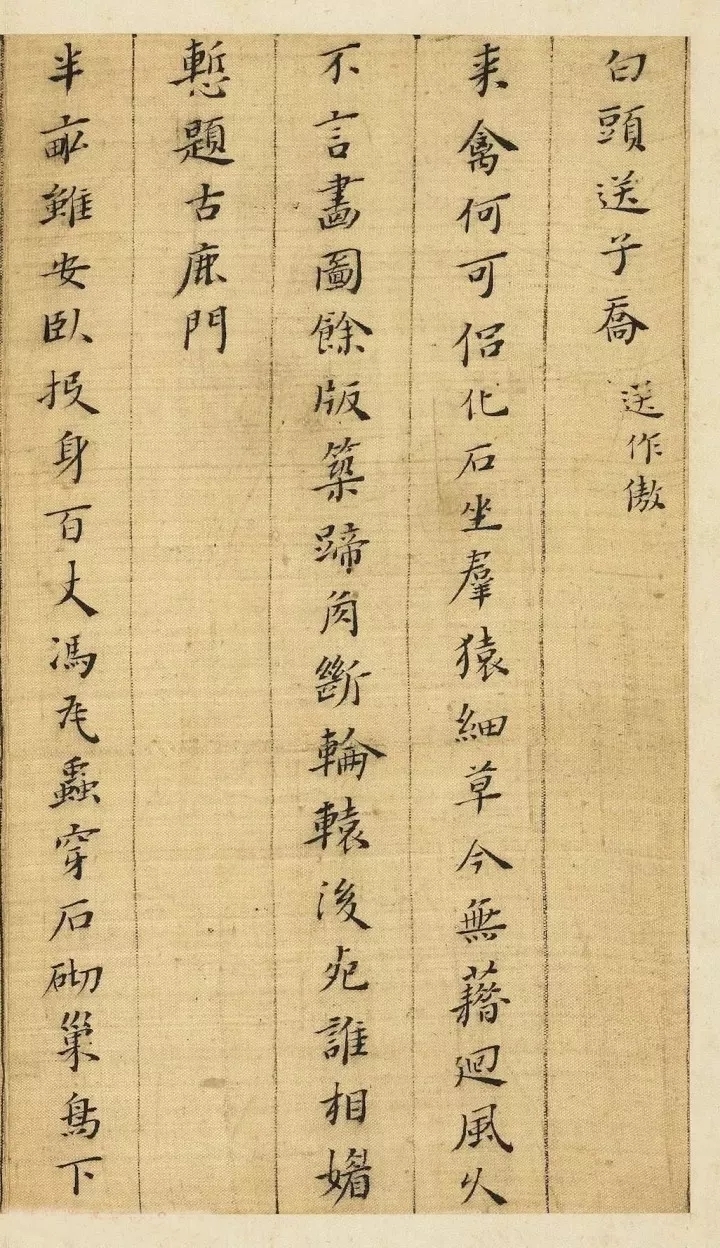 白頭送子喬 送作傲
来禽何可侶化石坐羣猿細草今無藉迴風久
不言畵圖餘版築蹄角斷輪轅後死誰相媢
慙題古鹿門
半畝雖安臥投身百丈馮瓦蟲穿石砌巢鳥下